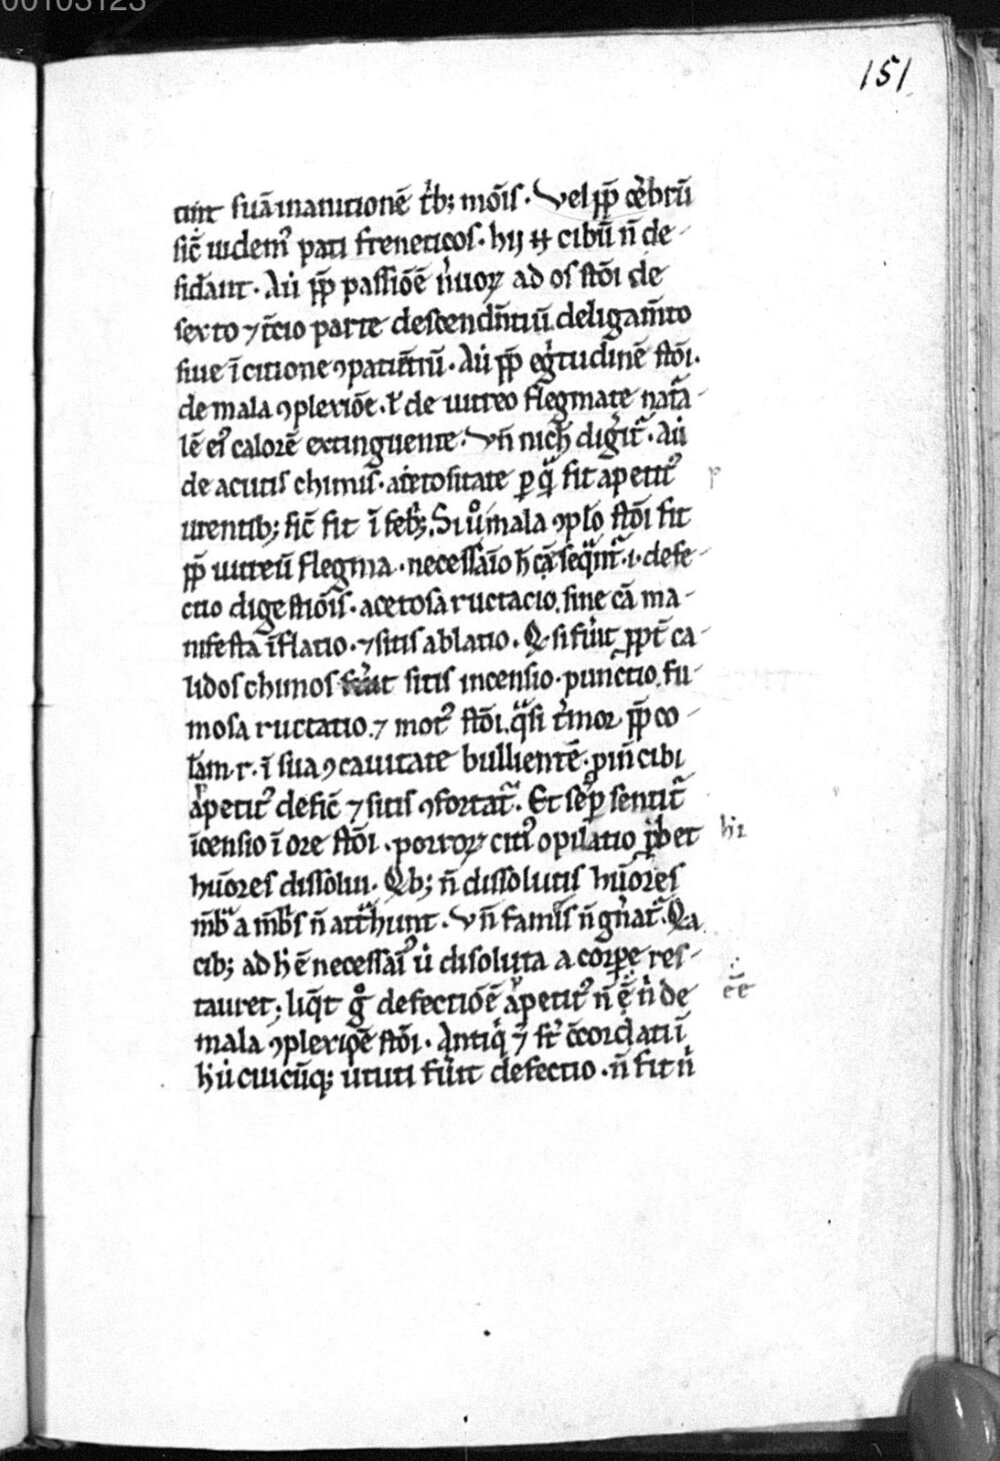 00103123
151
tiunt suā inanitionē t̉b; mōis. Vel ꝓp̄ cẻbrū
sic̄ uidem᷒ pati freneticos. hij .n. cibū n̄ de-
sidāt. Aủ ꝓp̄ passiōē nꝰuoꝝ ad os stōi de
sexto ⁊ t̄cio parte descendn̄tiū. deligam̄to
siue īcitione ꝯpatiētiū. Aủ ꝓp̄ egͥtudinē stōi.
de mala ꝯplexiōe. ł de uitreo flegmate natā-
lē eiꝰ calorē extinguente. Vn̄ nich̄ digͥit̄. Aủ
de acutis chimis. acͥetositate ꝑ qͣ̄ fit apetitꝰ
urentib; sic̄ fit ī feb᷒;. Si ůͦ mala ꝯplo̅ stōi fit
ꝓp̄ uitreū flegma. necessāio h̄ cā seqͣ̄nt᷒. i. defe-
ctio digestiōis. acetosa ructacio. sine cā ma-
nifesta īflatio. ⁊ sitis ablatio. Q̶ si fủit ꝓpt̄ ca-
lidos chimos sitis incensio. punctio. fu-
mosa ructatio. ⁊ motꝰ stōi. qͣ̄si tͥmor ꝓp̄ co-
lam. r. ī sua ꝯcauitate bullientē. pͥuī cibi
apetitꝰ defic̄ ⁊ sitis ꝯfortat᷒. Et sēꝑ sentit᷒
īcensio ī ore stōi. porroꝝ citiꝰ opilatio ꝓhͥbet
hūores dissolui. Qͥb; n̄ dissolutis hūores
m̄bͣ a m̄bͥs n̄ att̄hunt. Vn̄ famis n̄ gn̄at᷒. Qͥa
cib; ad h̄ ē necessaiꝰ ủ disoluta a corꝑe res-
tauret; liq̄t gͦ defectiōē apetitꝰ n̄ eē nͥ de
mala ꝯplexiōē stōi. Antiqͥ .⁊ sͥt ꝯcordatiū
h̄ ủ cuicūq; ủtuti fủit defectio. n̄ fit nͥ
eē